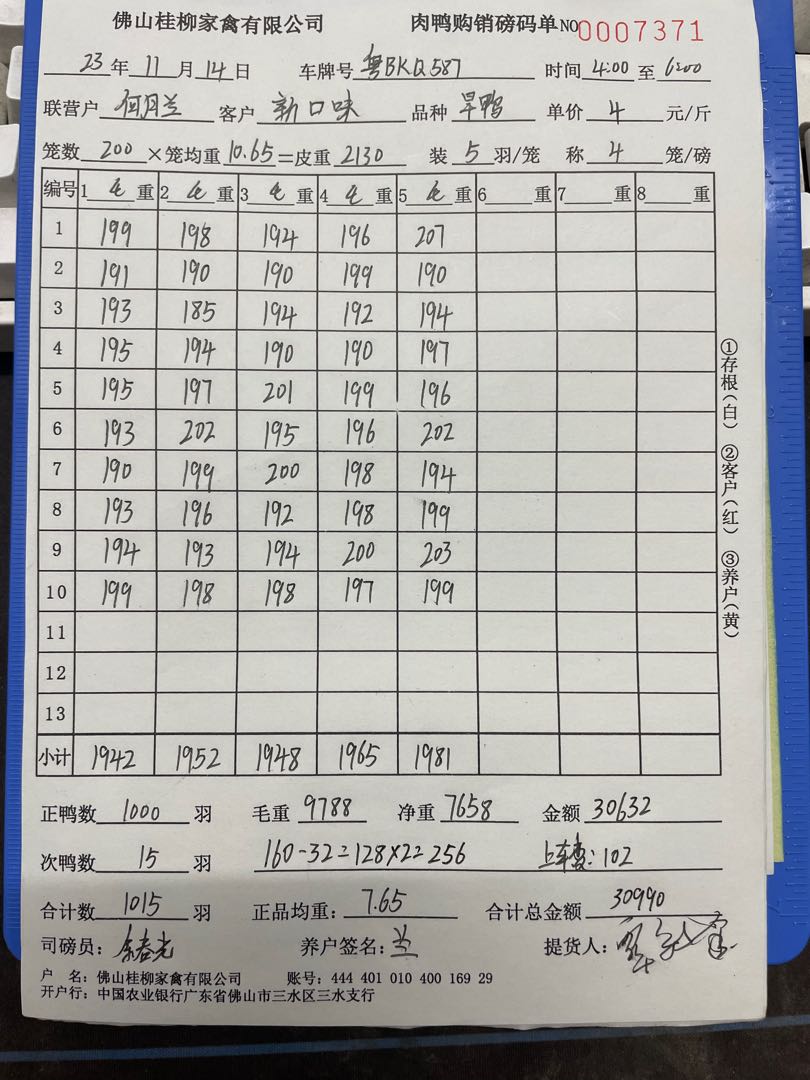 佛山桂柳家禽有限公司 肉鸭购销磅码单 NO 0007371
23年11月14日 车牌号 粤BKQ587 时间 4:00 至 6:00
联营户 何月兰 客户 新口味 品种 旱鸭 单价 4 元/斤
笼数 200 ×笼均重 10.65 =皮重 2130 装 5 羽/笼 称 4 笼/磅
编号 1 毛 重 2 毛 重 3 毛 重 4 毛 重 5 毛 重 6 重 7 重 8 重
1 199 198 194 196 207
2 191 190 190 199 190
3 193 185 194 192 194
4 195 194 190 190 197
5 195 197 201 199 196
6 193 202 195 196 202
7 190 199 200 198 194
8 193 196 192 198 199
9 194 193 194 200 203
10 199 198 198 197 199
11
12
13
小计 1942 1952 1948 1965 1981
①存根(白) ②客户(红) ③养户(黄)
正鸭数 1000 羽 毛重 9788 净重 7658 金额 30632
次鸭数 15 羽 160-32=128×2=256 上车费:102
合计数 1015 羽 正品均重: 7.65 合计总金额 30990
司磅员: 余春光 养户签名: 兰 提货人:
户 名: 佛山桂柳家禽有限公司 账号: 444 401 010 400 169 29
开户行: 中国农业银行广东省佛山市三水区三水支行